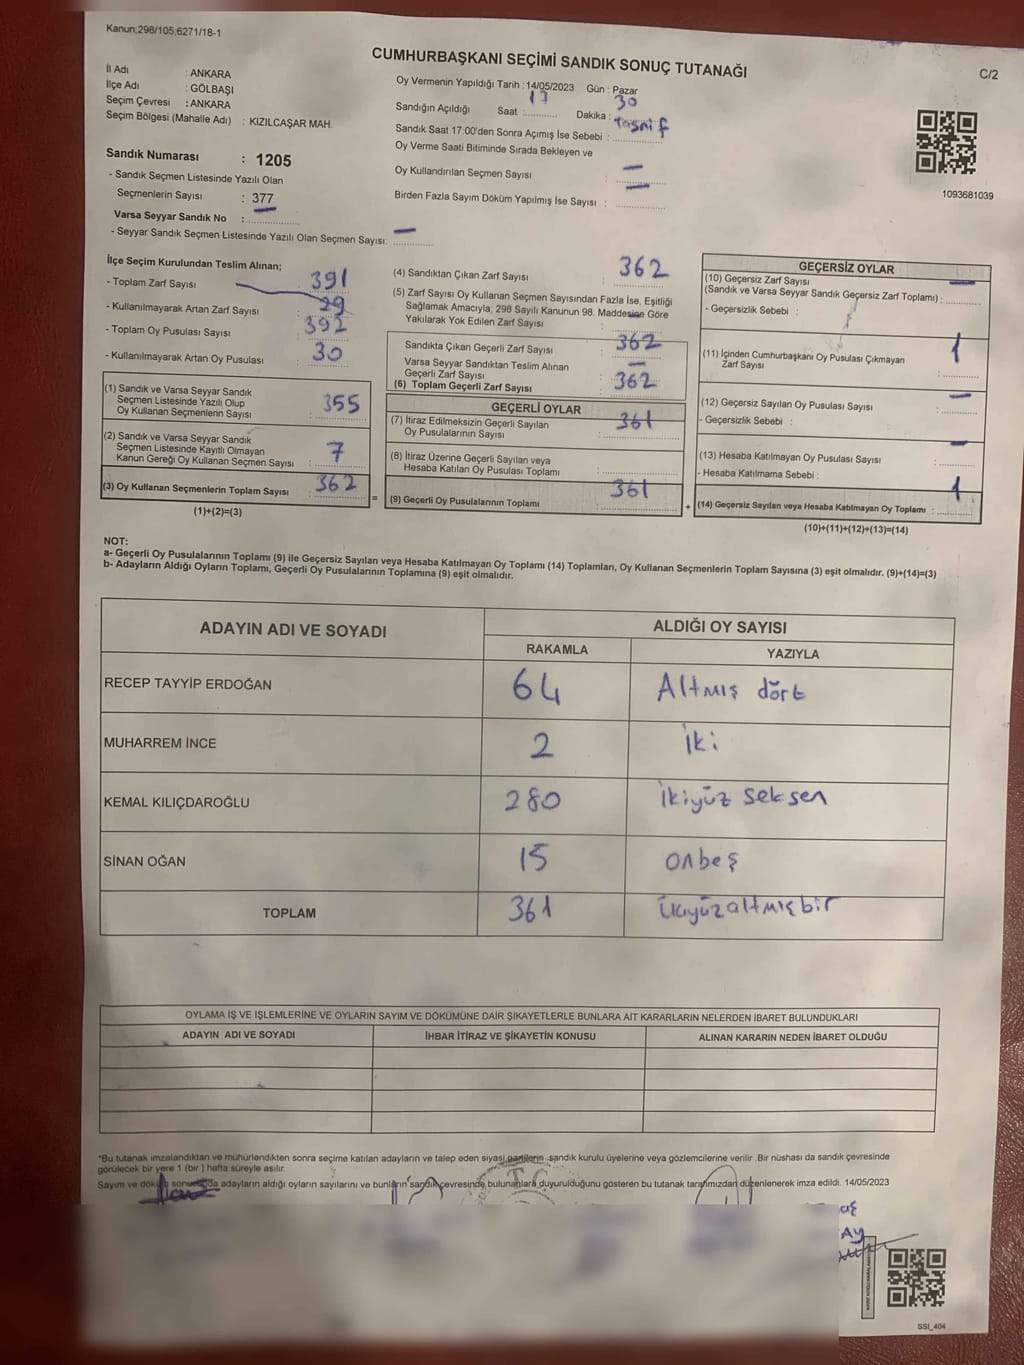 Kanun;298/105;6271/18-1
CUMHURBAŞKANI SEÇİMİ SANDIK SONUÇ TUTANAĞI
C/2
İl Adı : ANKARA
İlçe Adı : GÖLBAŞI
Seçim Çevresi : ANKARA
Seçim Bölgesi (Mahalle Adı) : KIZILCAŞAR MAH.
Oy Vermenin Yapıldığı Tarih : 14/05/2023 Gün : Pazar
Sandığın Açıldığı Saat : 17 Dakika : 30
Sandık Saat 17:00'den Sonra Açımış İse Sebebi : Tasnif
Oy Verme Saati Bitiminde Sırada Bekleyen ve
Oy Kullandırılan Seçmen Sayısı : —
Birden Fazla Sayım Döküm Yapılmış İse Sayısı : —
1093681039
Sandık Numarası : 1205
- Sandık Seçmen Listesinde Yazılı Olan
Seçmenlerin Sayısı : 377
Varsa Seyyar Sandık No : —
- Seyyar Sandık Seçmen Listesinde Yazılı Olan Seçmen Sayısı: —
İlçe Seçim Kurulundan Teslim Alınan;
- Toplam Zarf Sayısı : 391
- Kullanılmayarak Artan Zarf Sayısı : 29
- Toplam Oy Pusulası Sayısı : 392
- Kullanılmayarak Artan Oy Pusulası : 30
(1) Sandık ve Varsa Seyyar Sandık
Seçmen Listesinde Yazılı Olup
Oy Kullanan Seçmenlerin Sayısı : 355
(2) Sandık ve Varsa Seyyar Sandık
Seçmen Listesinde Kayıtlı Olmayan
Kanun Gereği Oy Kullanan Seçmen Sayısı : 7
(3) Oy Kullanan Seçmenlerin Toplam Sayısı : 362
(1)+(2)=(3)
(4) Sandıktan Çıkan Zarf Sayısı : 362
(5) Zarf Sayısı Oy Kullanan Seçmen Sayısından Fazla İse, Eşitliği
Sağlamak Amacıyla, 298 Sayılı Kanunun 98. Maddesine Göre
Yakılarak Yok Edilen Zarf Sayısı : —
Sandıkta Çıkan Geçerli Zarf Sayısı : 362
Varsa Seyyar Sandıktan Teslim Alınan
Geçerli Zarf Sayısı : —
(6) Toplam Geçerli Zarf Sayısı : 362
GEÇERLİ OYLAR
(7) İtiraz Edilmeksizin Geçerli Sayılan
Oy Pusulalarının Sayısı : 361
(8) İtiraz Üzerine Geçerli Sayılan veya
Hesaba Katılan Oy Pusulası Toplamı :
(9) Geçerli Oy Pusulalarının Toplamı : 361
GEÇERSİZ OYLAR
(10) Geçersiz Zarf Sayısı
(Sandık ve Varsa Seyyar Sandık Geçersiz Zarf Toplamı) : —
- Geçersizlik Sebebi :
(11) İçinden Cumhurbaşkanı Oy Pusulası Çıkmayan
Zarf Sayısı : 1
(12) Geçersiz Sayılan Oy Pusulası Sayısı : —
- Geçersizlik Sebebi :
(13) Hesaba Katılmayan Oy Pusulası Sayısı : —
- Hesaba Katılmama Sebebi :
(14) Geçersiz Sayılan veya Hesaba Katılmayan Oy Toplamı : 1
(10)+(11)+(12)+(13)=(14)
NOT:
a- Geçerli Oy Pusulalarının Toplamı (9) ile Geçersiz Sayılan veya Hesaba Katılmayan Oy Toplamı (14) Toplamları, Oy Kullanan Seçmenlerin Toplam Sayısına (3) eşit olmalıdır. (9)+(14)=(3)
b- Adayların Aldığı Oyların Toplamı, Geçerli Oy Pusulalarının Toplamına (9) eşit olmalıdır.
ADAYIN ADI VE SOYADI ALDIĞI OY SAYISI
RAKAMLA YAZIYLA
RECEP TAYYİP ERDOĞAN 64 Altmış dört
MUHARREM İNCE 2 iki
KEMAL KILIÇDAROĞLU 280 ikiyüz seksen
SİNAN OĞAN 15 onbeş
TOPLAM 361 üçyüzaltmışbir
OYLAMA İŞ VE İŞLEMLERİNE VE OYLARIN SAYIM VE DÖKÜMÜNE DAİR ŞİKAYETLERLE BUNLARA AİT KARARLARIN NELERDEN İBARET BULUNDUKLARI
ADAYIN ADI VE SOYADI İHBAR İTİRAZ VE ŞİKAYETİN KONUSU ALINAN KARARIN NEDEN İBARET OLDUĞU
*Bu tutanak imzalandıktan ve mühürlendikten sonra seçime katılan adayların ve talep eden siyasi partilerin sandık kurulu üyelerine veya gözlemcilerine verilir .Bir nüshası da sandık çevresinde
görülecek bir yere 1 (bir ) hafta süreyle asılır.
Sayım ve döküm sonucunda adayların aldığı oyların sayılarını ve bunların sandık çevresinde bulunanlara duyurulduğunu gösteren bu tutanak tarafımızdan düzenlenerek imza edildi. 14/05/2023
T.C.
AY
SSI_404